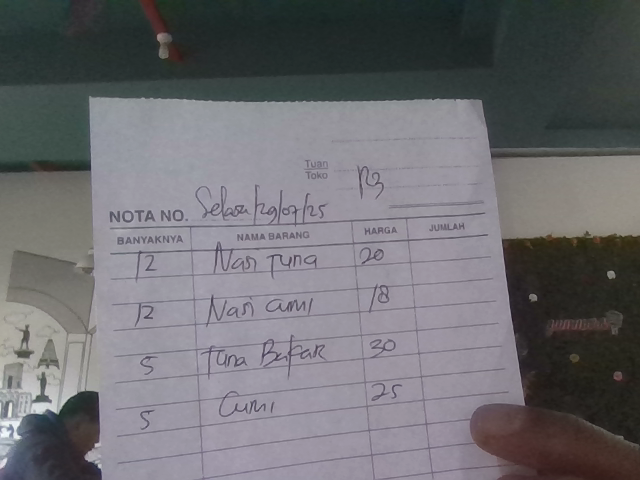 Tuan
Toko
R3
NOTA NO. Selasa/29/07/25
BANYAKNYA NAMA BARANG HARGA JUMLAH
12 Nasi Tuna 20
12 Nasi Cumi 18
5 Tuna Bakar 30
5 Cumi 25